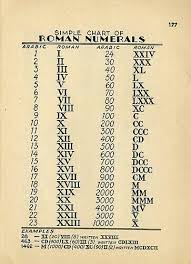 177
SIMPLE CHART OF
ROMAN NUMERALS
ARABIC ROMAN ARABIC ROMAN
1 I 24 XXIV
2 II 30 XXX
3 III 40 XL
4 IV 50 L
5 V 60 LX
6 VI 70 LXX
7 VII 80 LXXX
8 VIII 90 XC
9 IX 100 C
10 X 200 CC
11 XI 300 CCC
12 XII 400 CD
13 XIII 500 D
14 XIV 600 DC
15 XV 700 DCC
16 XVI 800 DCCC
17 XVII 900 CM
18 XVIII 1000 M
19 XIX 2000 MM
20 XX 3000 MMM
21 XXI 4000 MV
22 XXII 5000 V
23 XXIII 10000 X
EXAMPLES
28 - XX (20) VIII (8) WRITTEN XXVIII
463 - CD (400) LX (60) III (3) WRITTEN CDLXIII
1492 - M (1000) CD (400) XC (90) II (2) WRITTEN MCDXCII